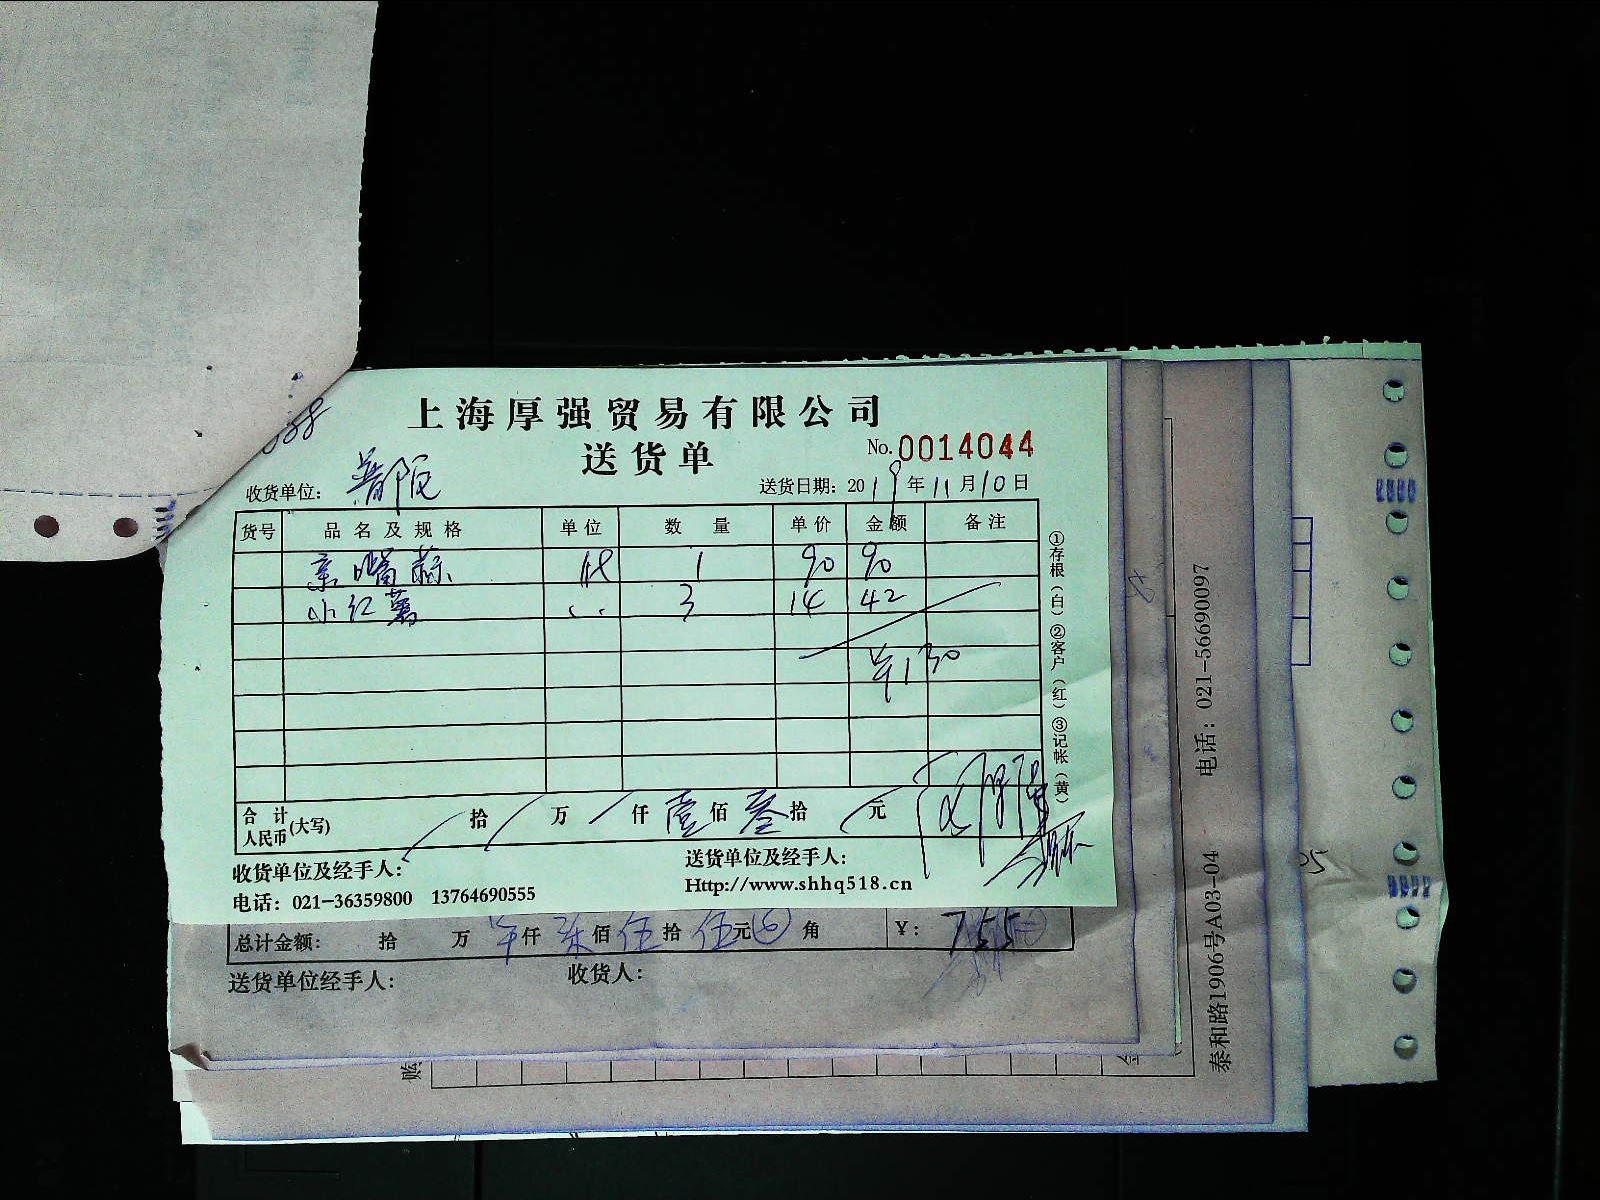 上海厚强贸易有限公司
送货单
No. 0014044
收货单位：
送货日期：2019年11月10日
货号 品名及规格 单位 数量 单价 金额 备注
1 90 90
小红薯 3 14 42
¥130
合计人民币(大写) 拾 万 仟 壹佰 叁拾 元
收货单位及经手人：
送货单位及经手人：
电话：021-36359800 13764690555
Http://www.shhq518.cn
①存根（白）②客户（红）③记帐（黄）
总计金额： 拾 万 仟 柒佰 伍拾 伍元 角 ¥：755
送货单位经手人： 收货人：
电话：021-56690097
泰和路1906号A03-04